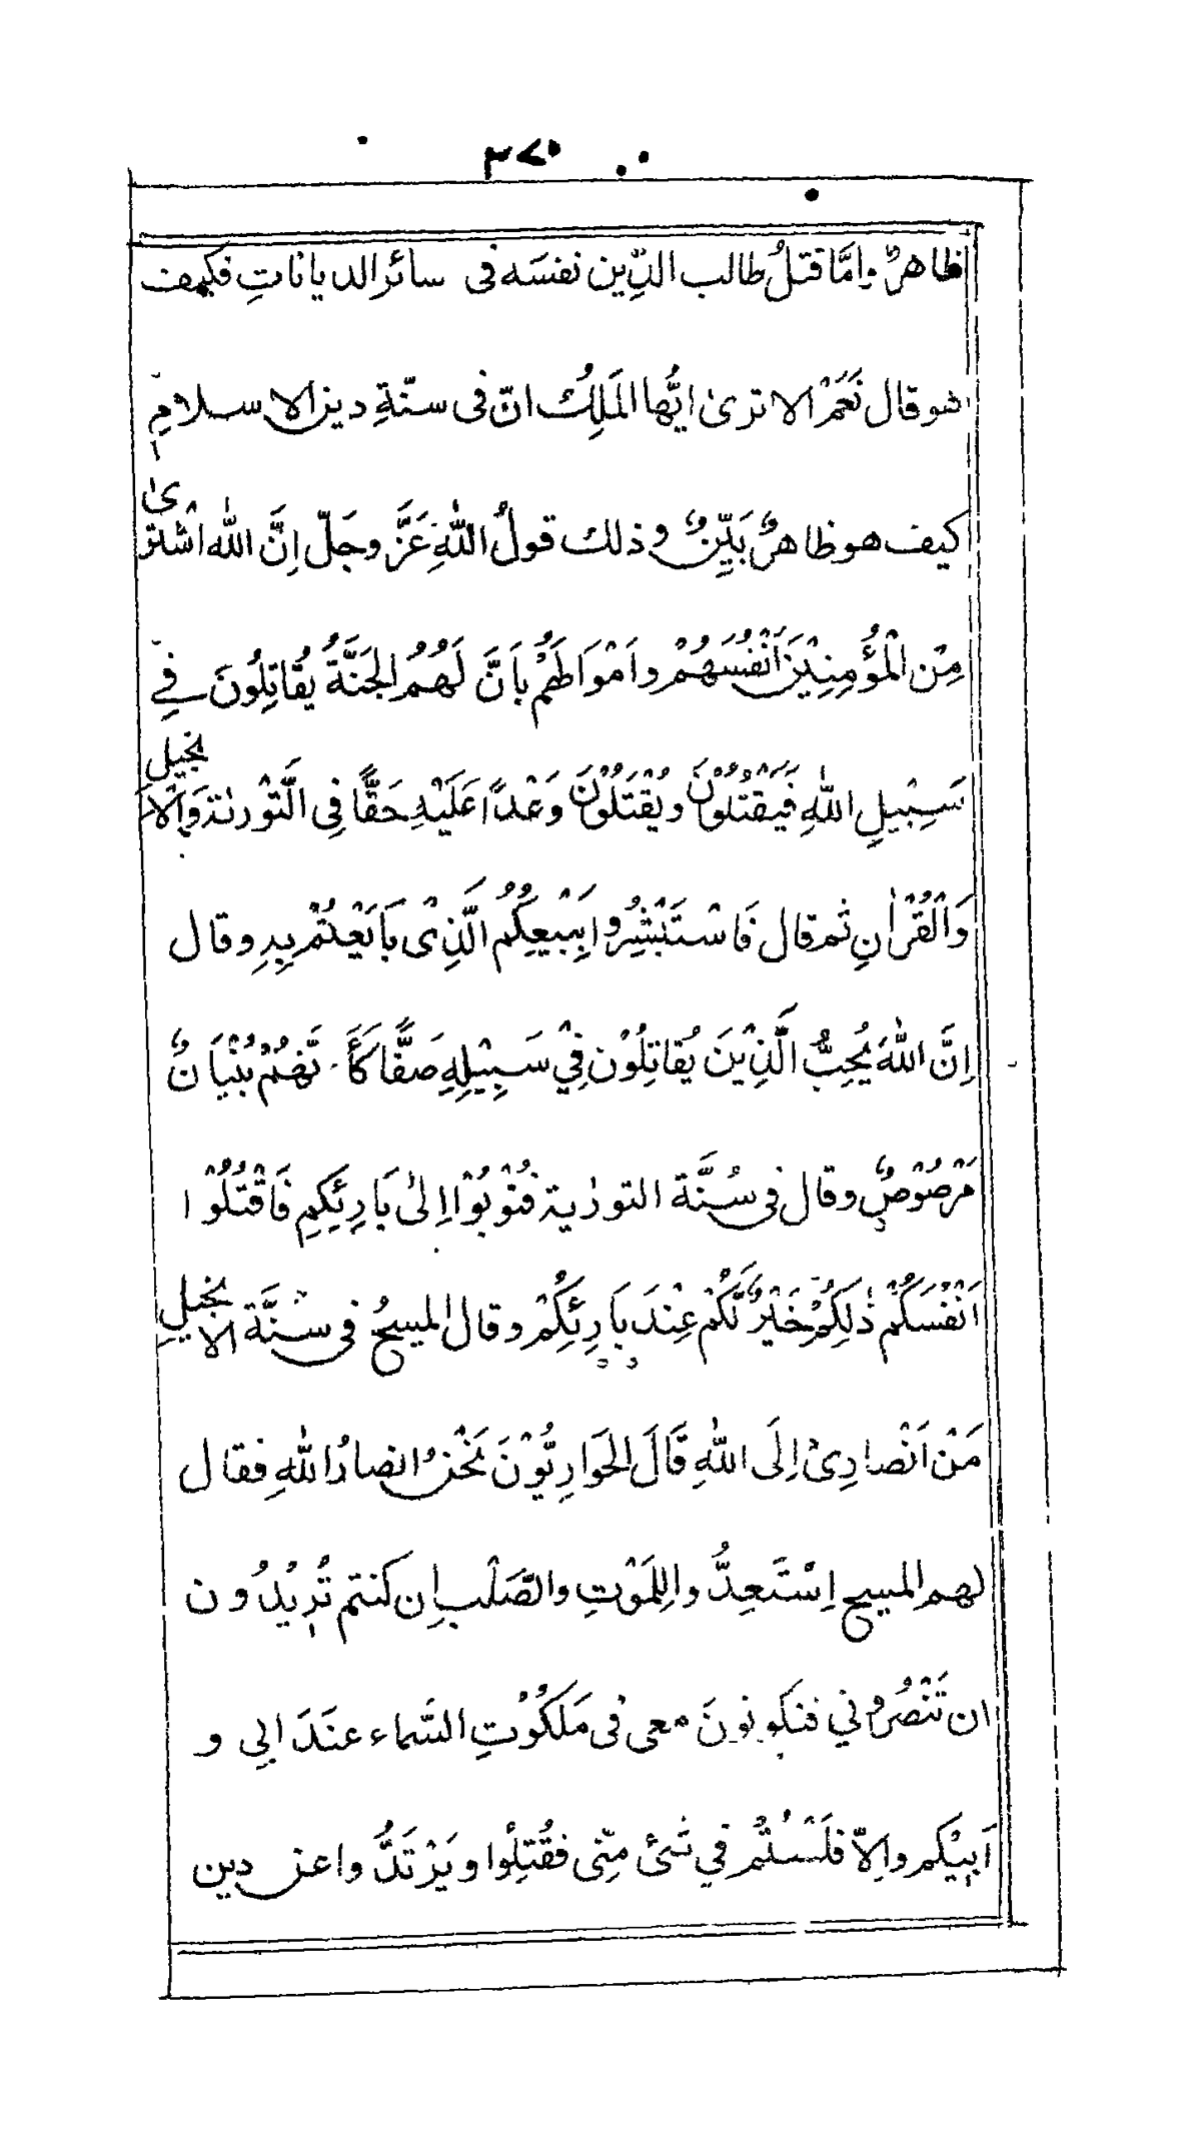 ٣٧٠
ظاهرٌ وامّا قتلُ طالب الدِّين نفسَه فى سائر الدياناتِ فكيف
هو قال نَعَمْ الا ترىٰ ايُّها المَلِكُ انّ فى سنّةِ دين الاسلامِ
كيف هو ظاهرٌ بَيِّنٌ وذلك قولُ اللّٰهِ عَزَّ وجَلّ اِنَّ اللّٰه اشْترىٰ
مِنْ الْمُؤْمِنِيْنَ اَنْفُسَهُمْ واَمْوَالَهُمْ بِاَنَّ لَهُمُ الجَنَّةُ يُقَاتِلُونَ فِے
سَبِيْلِ اللّٰهِ فَيَقْتُلُوْنَ ويُقْتَلُوْنَ وَعْدًا عَلَيْهِ حَقًّا فِى الَّتوْرٰىةِ وَاْلاِنجيلِ
وَاْلقُرْاٰنِ ثم قال فَاسْتَبْشِرُوا بِبَيْعِكُمُ الَّذِىْ بَايَعْتُمْ بِهِ وقال
اِنَّ اللّٰهَ يُحِبُّ الَّذِيْنَ يُقاتِلُوْن فِيْ سَبِيْلِهِ صَفًّا كَاَنَّهُمْ بُنْيَانٌ
مَرْصُوْصٌ وقال فى سُنَّة التورٰية فتُوْبُوْا اِلىٰ بَارِئِكِمِ فَاقْتُلُوْا
اَنْفُسَكُمْ ذٰلِكُمْ خَيْرٌ لَّكُمْ عِنْدَ بَارِئِكُمْ وقال المسيحُ فى سُنَّة الانجيلِ
مَنْ اَنْصارِىْ اِلَى اللّٰهِ قَالَ الحَوَارِيُّوْنَ نَحْنُ انصارُ اللّٰهِ فقال
لهم المسيح اِسْتَعِدُّوا لِلمَوْتِ والصَّلْبِ اِن كنتم تُرِيْدُون
ان تَنْصُرُوني فتكونونَ معى فى مَلَكُوْتِ السَّماء عنَدَ ابي و
اَبِيْكم واِلاّ فلَسْتُمْ في شئ مِنّى فقُتِلُوا ويَرْتَدُّوا عن دين